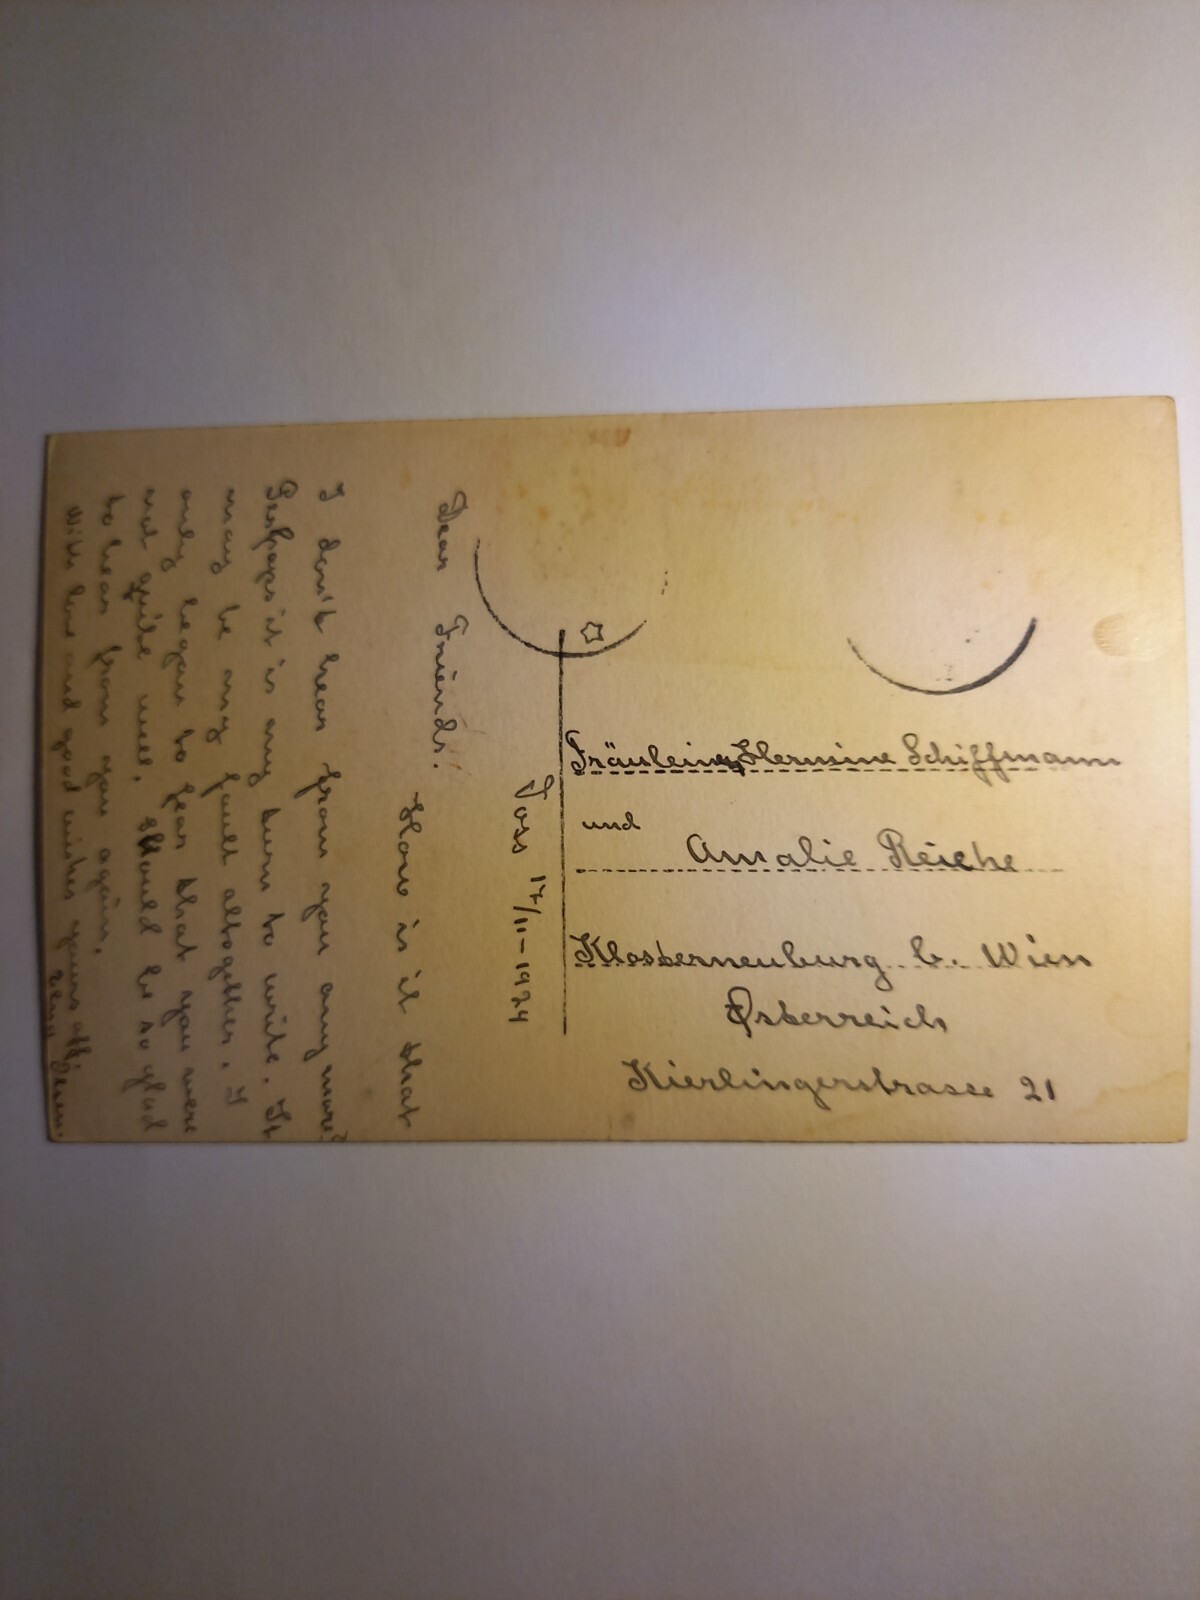 Joss 17/11-1924
Dear Friends!
How is it that
I don't hear from you any more?
Perhaps it is my turn to write. It
may be my fault altogether. I
only began to fear that you were
not quite well. Should be so glad
to hear from you again.
With love and good wishes yours
Fräulein Hermine Schiffmann
und
Amalie Reiche
Klosterneuburg b. Wien
Österreich
Kierlingerstrasse 21